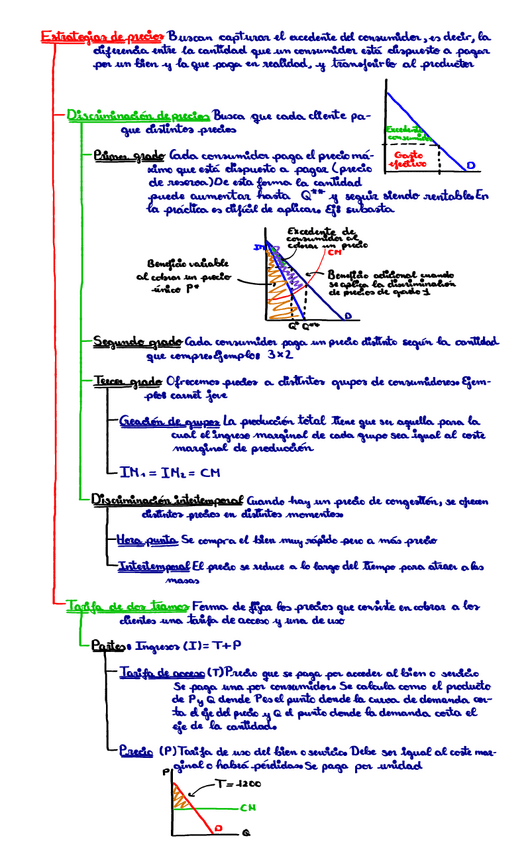 Estrategias de precios Buscan capturar el excedente del consumidor, es decir, la
diferencia entre la cantidad que un consumidor está dispuesto a pagar
por un bien y la que paga en realidad, y transferirlo al productor
Discriminación de precios Busca que cada cliente pa-
gue distintos precios
Excedente
consumidor
Gasto
efectivo
D
Primer grado Cada consumidor paga el precio má-
ximo que está dispuesto a pagar (precio
de reserva) De esta forma la cantidad
puede aumentar hasta Q** y seguir siendo rentable. En
la práctica es difícil de aplicar. Ej: subasta
Excedente de
consumidor al
cobrar un precio
CM
Beneficio variable
al cobrar un precio
único P*
Beneficio adicional cuando
se aplica la discriminación
de precios de grado 1
D
Q* Q**
Segundo grado Cada consumidor paga un precio distinto según la cantidad
que compre. Ejemplo: 3x2
Tercer grado Ofrecemos precios a distintos grupos de consumidores. Ejem-
plo: carnet jove
Creación de grupos La producción total tiene que ser aquella para la
cual el ingreso marginal de cada grupo sea igual al coste
marginal de producción
IM₁ = IM₂ = CM
Discriminación intertemporal Cuando hay un precio de congestión, se ofrecen
distintos precios en distintos momentos
Hora punta Se compra el bien muy rápido pero a más precio
Intertemporal El precio se reduce a lo largo del tiempo para atraer a las
masas
Tarifa de dos tramos Forma de fijar los precios que consiste en cobrar a los
clientes una tarifa de acceso y una de uso
Partes: Ingresos (I) = T+P
Tarifa de acceso (T) Precio que se paga por acceder al bien o servicio
Se paga una por consumidor. Se calcula como el producto
de P y Q donde P es el punto donde la curva de demanda cor-
ta el eje del precio y Q el punto donde la demanda corta el
eje de la cantidad.
Precio (P) Tarifa de uso del bien o servicio. Debe ser igual al coste mar-
ginal o habrá pérdidas. Se paga por unidad
P
T = 1200
CM
D
Q